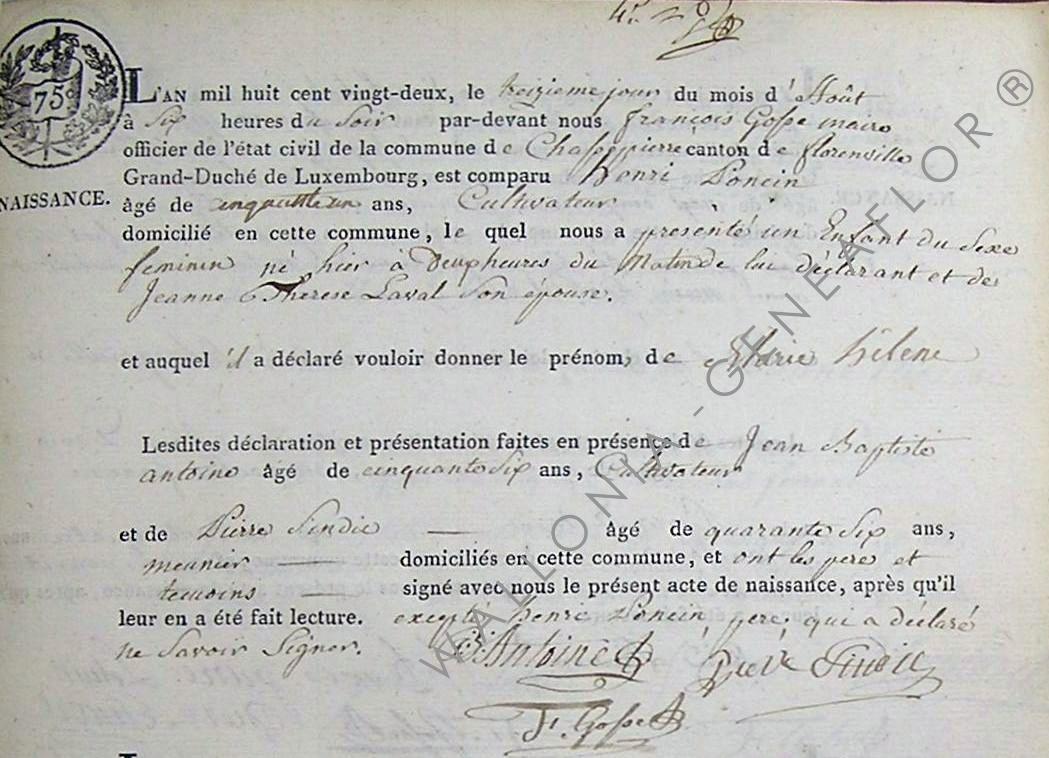 75c
NAISSANCE.
L'AN mil huit cent vingt-deux, le treizieme jour du mois d'Août
à Six heures du Soir par-devant nous françois Gosse maire
officier de l'état civil de la commune de Chassepierre canton de florenville
Grand-Duché de Luxembourg, est comparu Henri Poncin
âgé de cinquante un ans, Cultivateur
domicilié en cette commune, le quel nous a presenté un Enfant du Sexe
feminin né hier à Deux heures du Matin de lui déclarant et de
Jeanne Thérese Laval Son épouse.
et auquel il a déclaré vouloir donner le prénoms de Marie hélene
Lesdites déclaration et présentation faites en présence de Jean Baptiste
antoine âgé de cinquante Six ans, Cultivateur
et de Pierre Sindic âgé de quarante Six ans,
meunier domiciliés en cette commune, et ont les pere et
temoins signé avec nous le présent acte de naissance, après qu'il
leur en a été fait lecture. excepté henri Poncin pere, qui a déclaré
ne Savoir Signer. Antoine Sindic
F. Gosse
WALLONIA - GENEAFLOR ®